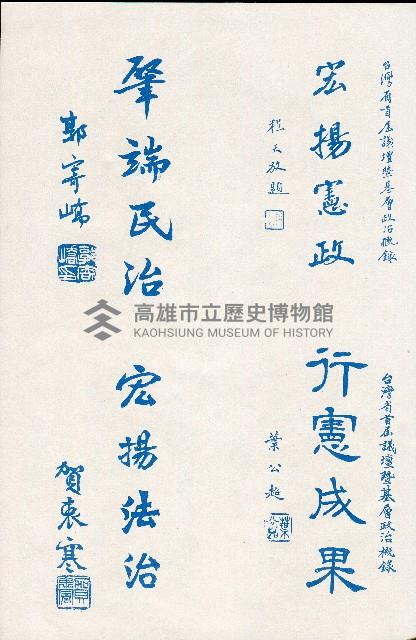 台灣省首屆議壇暨基層政治概錄
宏揚憲政
程天放題
台灣省首屆議壇暨基層政治概錄
行憲成果
葉公超
肇端民治
郭寄嶠
宏揚法治
賀衷寒
高雄市立歷史博物館
KAOHSIUNG MUSEUM OF HISTORY